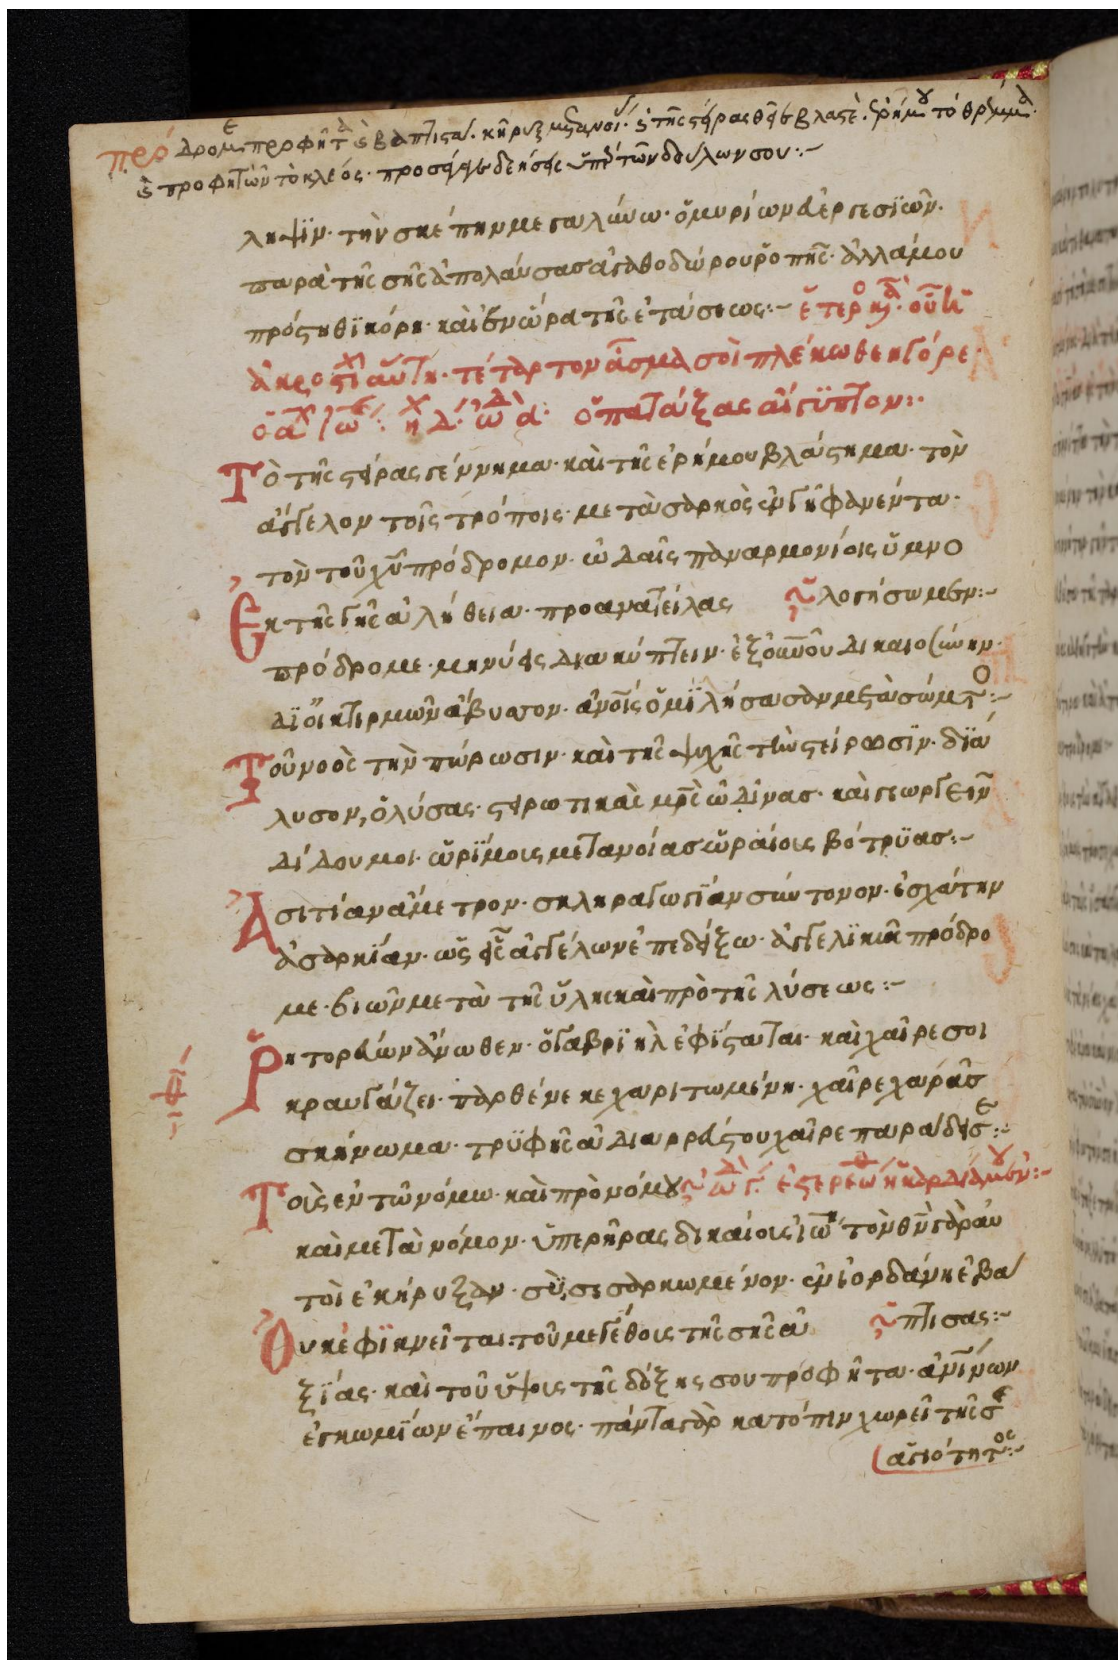 πρόδρομε προφῆτα καὶ βαπτιστά· κῆρυξ μετανοίας· ὁ τῆς στείρας θεῖε βλαστέ· ἐρήμου τὸ θρέμμα·
καὶ προφητῶν τὸ κλέος· προσάγαγε δεήσεις ὑπὲρ τῶν δούλων σου:~
ληψϊν· τὴν σκέπην μεγαλύνω· ὁ μυρίων εὐεργεσϊῶν·
παρὰ τῆς σῆς ἀπολαύσας ἀγαθοδώρου ῥοπῆς· ἀλλά μου
πρόστηθϊ κόρη· καὶ ἐν ὥρα τῆς ἐτάσεως:~ ἕτερος κανὼν οὗ ἡ
ἀκροστιχὶς αὕτη· τέταρτον ᾆσμα σοὶ πλέκω θεηγόρε·
ὁ πατάξας αἴγϋπτον:·
Τὸ τῆς στείρας γέννημα· καὶ τῆς ἐρήμου βλάστημα· τὸν
ἄγγελον τοῖς τρόποις· μετὰ σαρκὸς ἐν γῆ φανέντα·
τὸν τοῦ χῦ πρόδρομον· ὠδαῖς παναρμονίοις ὕμνο
λογήσωμεν:~
Ἐκ τῆς γῆς ἀλήθεια· προανατείλας
πρόδρομε· μηνύεις διακύπτειν· ἐξ οὐνοῦ δικαιοσύνην·
δϊ οἰκτιρμῶν ἄβυσσον· ἀνοῖς ὁμϊλήσασαν μετὰ σώματος:~
Τοῦ νοὸς τὴν πώρωσιν· καὶ τῆς ψυχῆς τὴν στείρωσϊν· δϊά
λυσον, ὁ λύσας· στειρωτικὰς μρς ὠδίνας· καὶ γεωργεῖν
δίδου μοι· ὡρϊμοις μετανοίας ὡραίοις βότρϋας:~
Ἀσιτίαν ἄμετρον· σκληραγωγϊαν σύντονον· ἐσχάτην
ἀσαρκϊαν· ὡς εἷς ἀγγέλων ἐπεδείξω· ἀγγελϊκῶς πρόδρο
με· βιῶν μετὰ τῆς ὕλης καὶ πρὸ τῆς λύσεως:~
Ῥητορεύων ἄνωθεν· ὁ γαβρϊὴλ ἐφϊσταται· καὶ χαῖρε σοι
κραυγάζει· παρθένε κεχαριτωμένη· χαῖρε χαρᾶς
σκήνωμα· τρϋφῆς ἀδιαρρεύστου χαῖρε παράδεισε:~
Τοῖς ἐν τῶ νόμω· καὶ πρὸ νόμου ᾠδὴ γ΄. ἐστερεώθη ἡ καρδία μου ἐν:~
καὶ μετὰ νόμον· ὑπερῆρας δικαίοις ἰω τὸν θν γὰρ αὐ
τοὶ ἐκήρυξαν· σὺ, σεσαρκωμένον· ἐν ἰορδάνη ἐβά
πτισας:~
Οὐκ ἐφϊκνεῖται· τοῦ μεγέθους τῆς σῆς ἀ
ξϊας· καὶ τοῦ ὕψους τῆς δόξης σου προφῆτα· ἀνινων
ἐγκωμϊων ἔπαινος· πάντα γὰρ κατόπιν χωρεῖ τῆς σῆς
ἁγιότητος:~